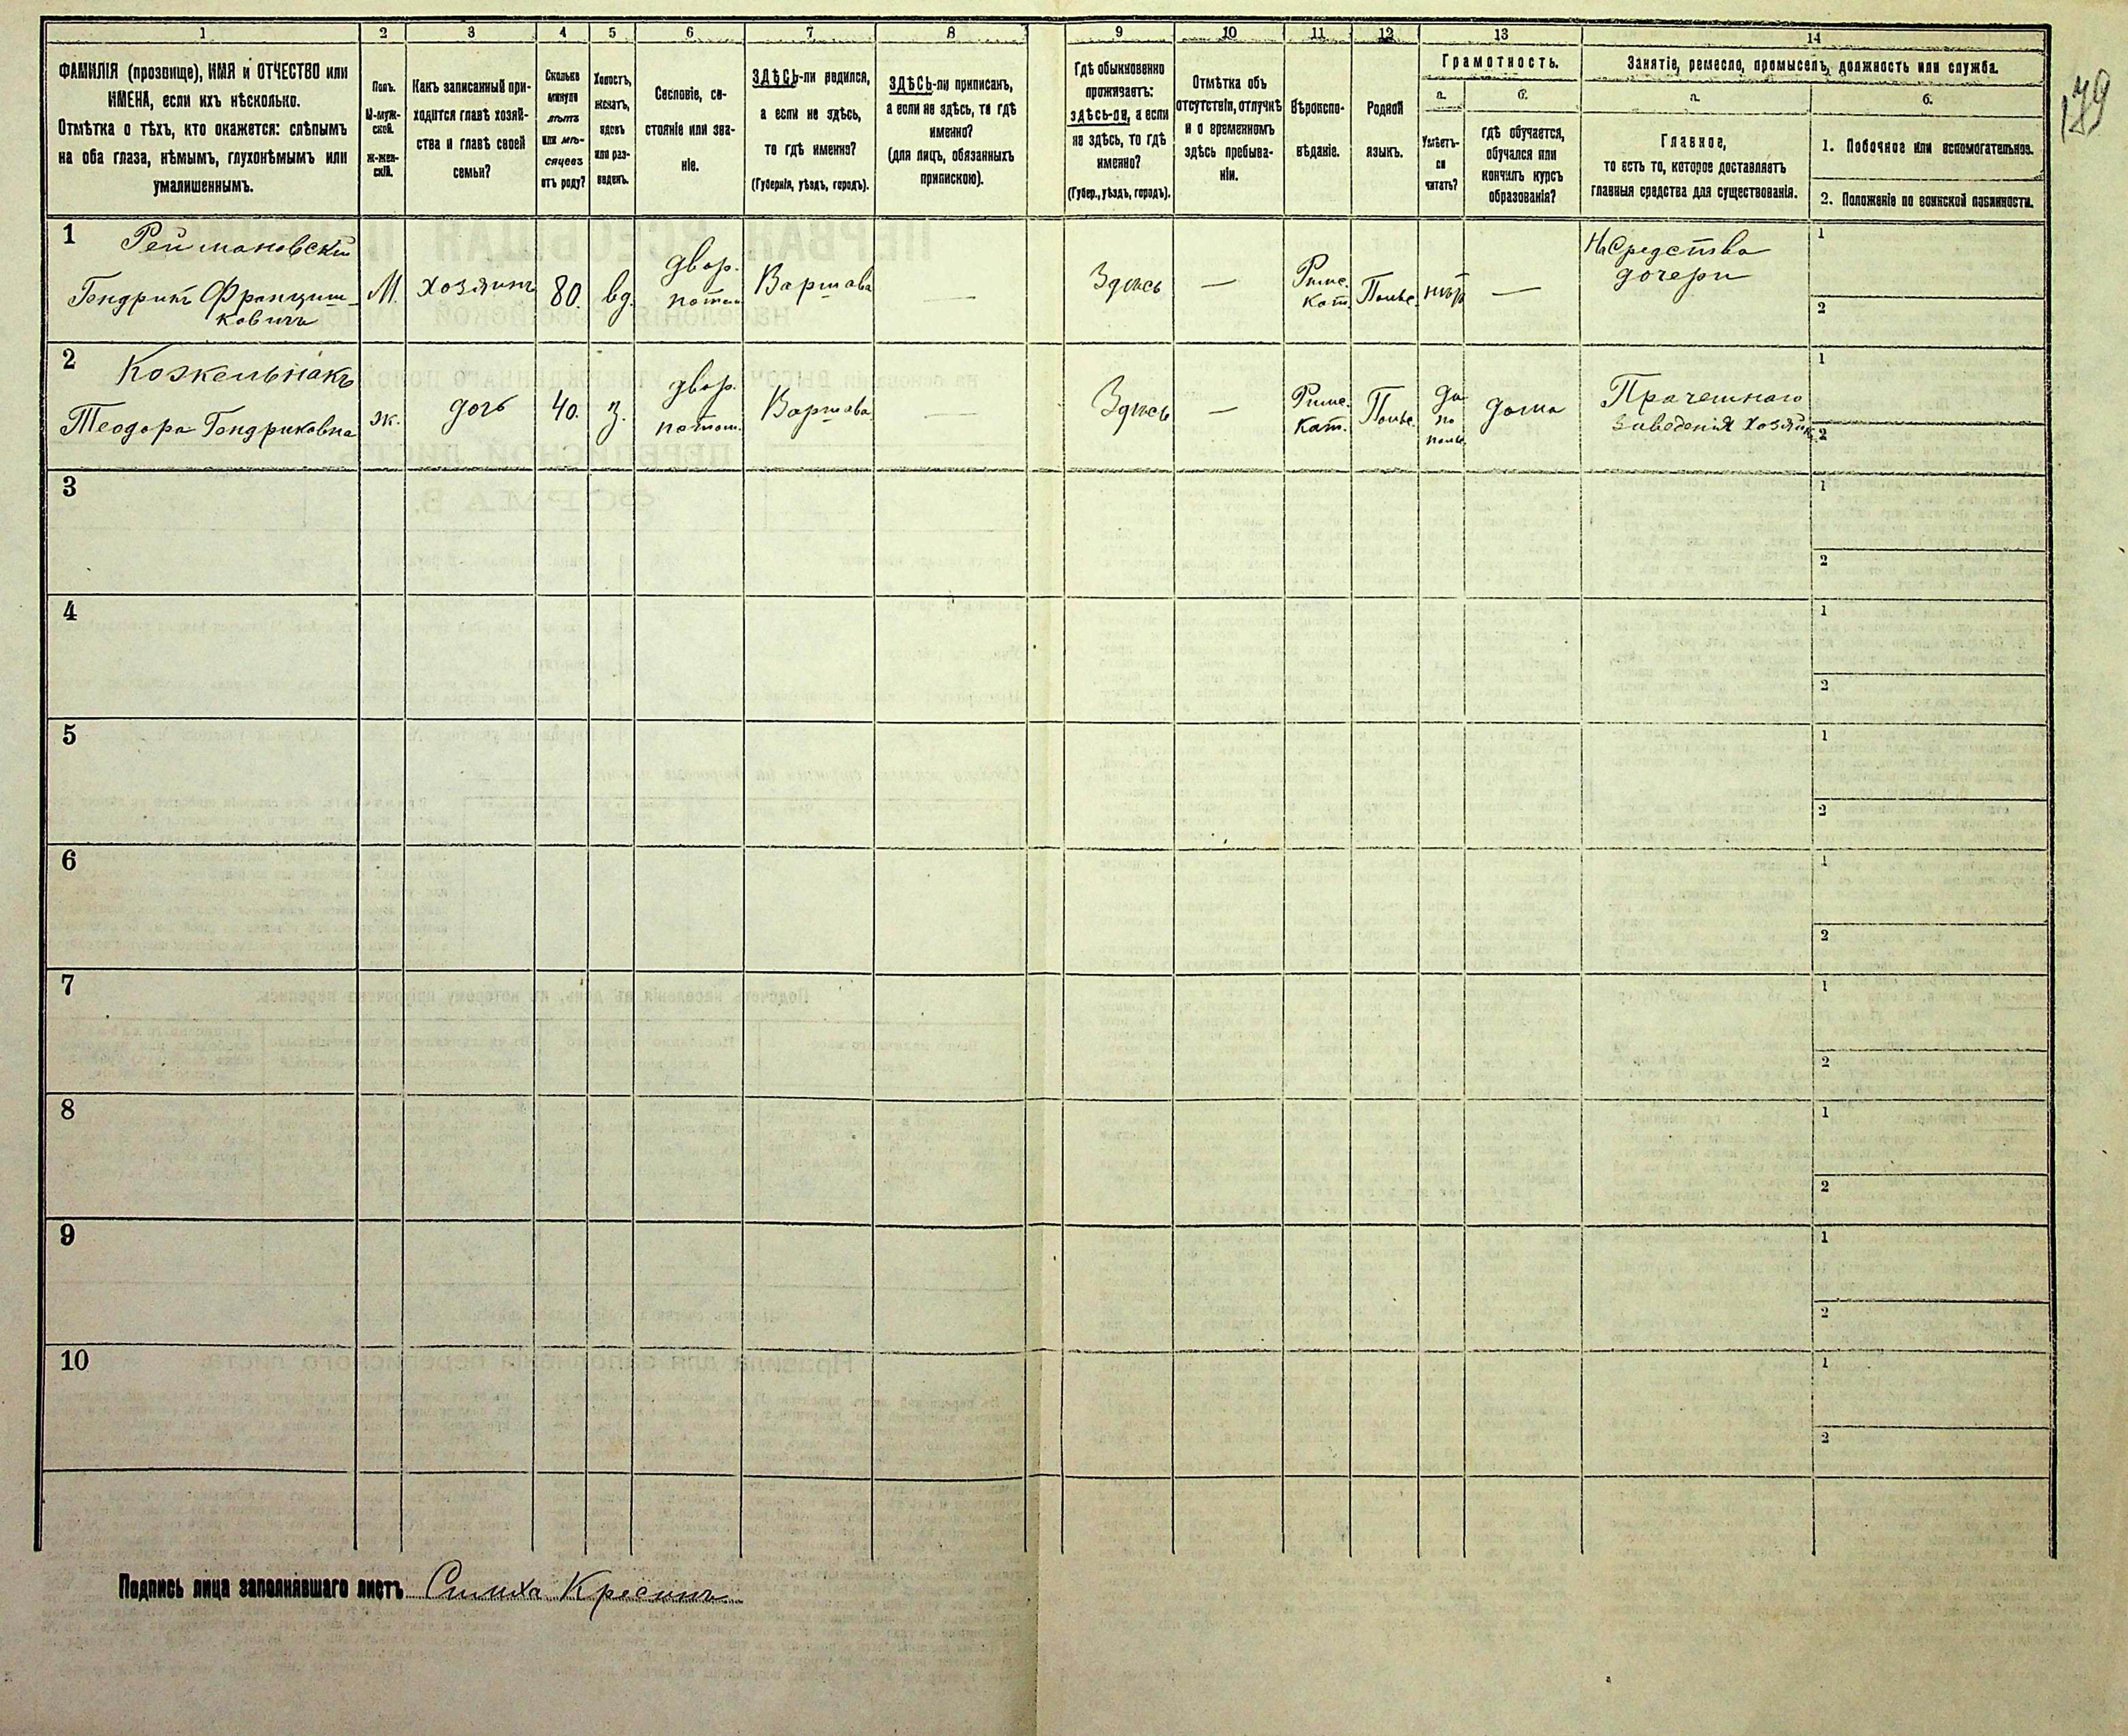 179
1 2 3 4 5 6 7 8 9 10 11 12 13 14
ФАМИЛІЯ (прозвище), ИМЯ и ОТЧЕСТВО или
ИМЕНА, если ихъ нѣсколько.
Отмѣтка о тѣхъ, кто окажется: слѣпымъ
на оба глаза, нѣмымъ, глухонѣмымъ или
умалишеннымъ.
Полъ.
М-муж-
ской.
Ж-жен-
скій.
Какъ записанный при-
ходится главѣ хозяй-
ства и главѣ своей
семьи?
Сколько
минуло
лѣтъ
или мѣ-
сяцевъ
отъ роду?
Холостъ,
женатъ,
вдовъ
или раз-
веденъ.
Сословіе, со-
стояніе или зва-
ніе.
ЗДѢСЬ-ли родился,
а если не здѣсь,
то гдѣ именно?
(Губернія, уѣздъ, городъ).
ЗДѢСЬ-ли приписан,
а если не здѣсь, то гдѣ
именно?
(для лицъ, обязанныхъ
припискою).
Гдѣ обыкновенно
проживаетъ:
здѣсь-ли, а если
не здѣсь, то гдѣ
именно?
(Губер., уѣздъ, городъ).
Отмѣтка объ
отсутствіи, отлучкѣ
и о временномъ
здѣсь пребыва-
ніи.
Вѣроиспо-
вѣданіе.
Родной
языкъ.
Грамотность.
а.
Умѣетъ-
ли
читать?
б.
гдѣ обучается,
обучался или
кончилъ курсъ
образованія?
Занятіе, ремесло, промыселъ, должность или служба.
а.
Главное,
то есть то, которое доставляетъ
главныя средства для существованія.
б.
1. Побочное или вспомогательное.
2. Положеніе по воинской повинности.
1 Реймановскій
Гендрикъ Францишковичъ
М.
хозяинъ
80.
вд.
двор.
потом.
Варшава
—
Здѣсь
—
Римс.
Кат.
Польс.
нѣтъ
—
На Средства
дочери
1
2
2 Кожельнакъ
Теодора Гендриковна
ж.
дочь
40.
з.
двор.
потом.
Варшава
—
Здѣсь
—
Римс.
Кат.
Польс.
да
по
польс.
дома
Прачешнаго
заведенія хозяйк.
1
2
3
1
2
4
1
2
5
1
2
6
1
2
7
1
2
8
1
2
9
1
2
10
1
2
Подпись лица заполнявшаго листъ Симха Кресинъ